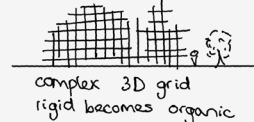 complex 3D grid
rigid becomes organic